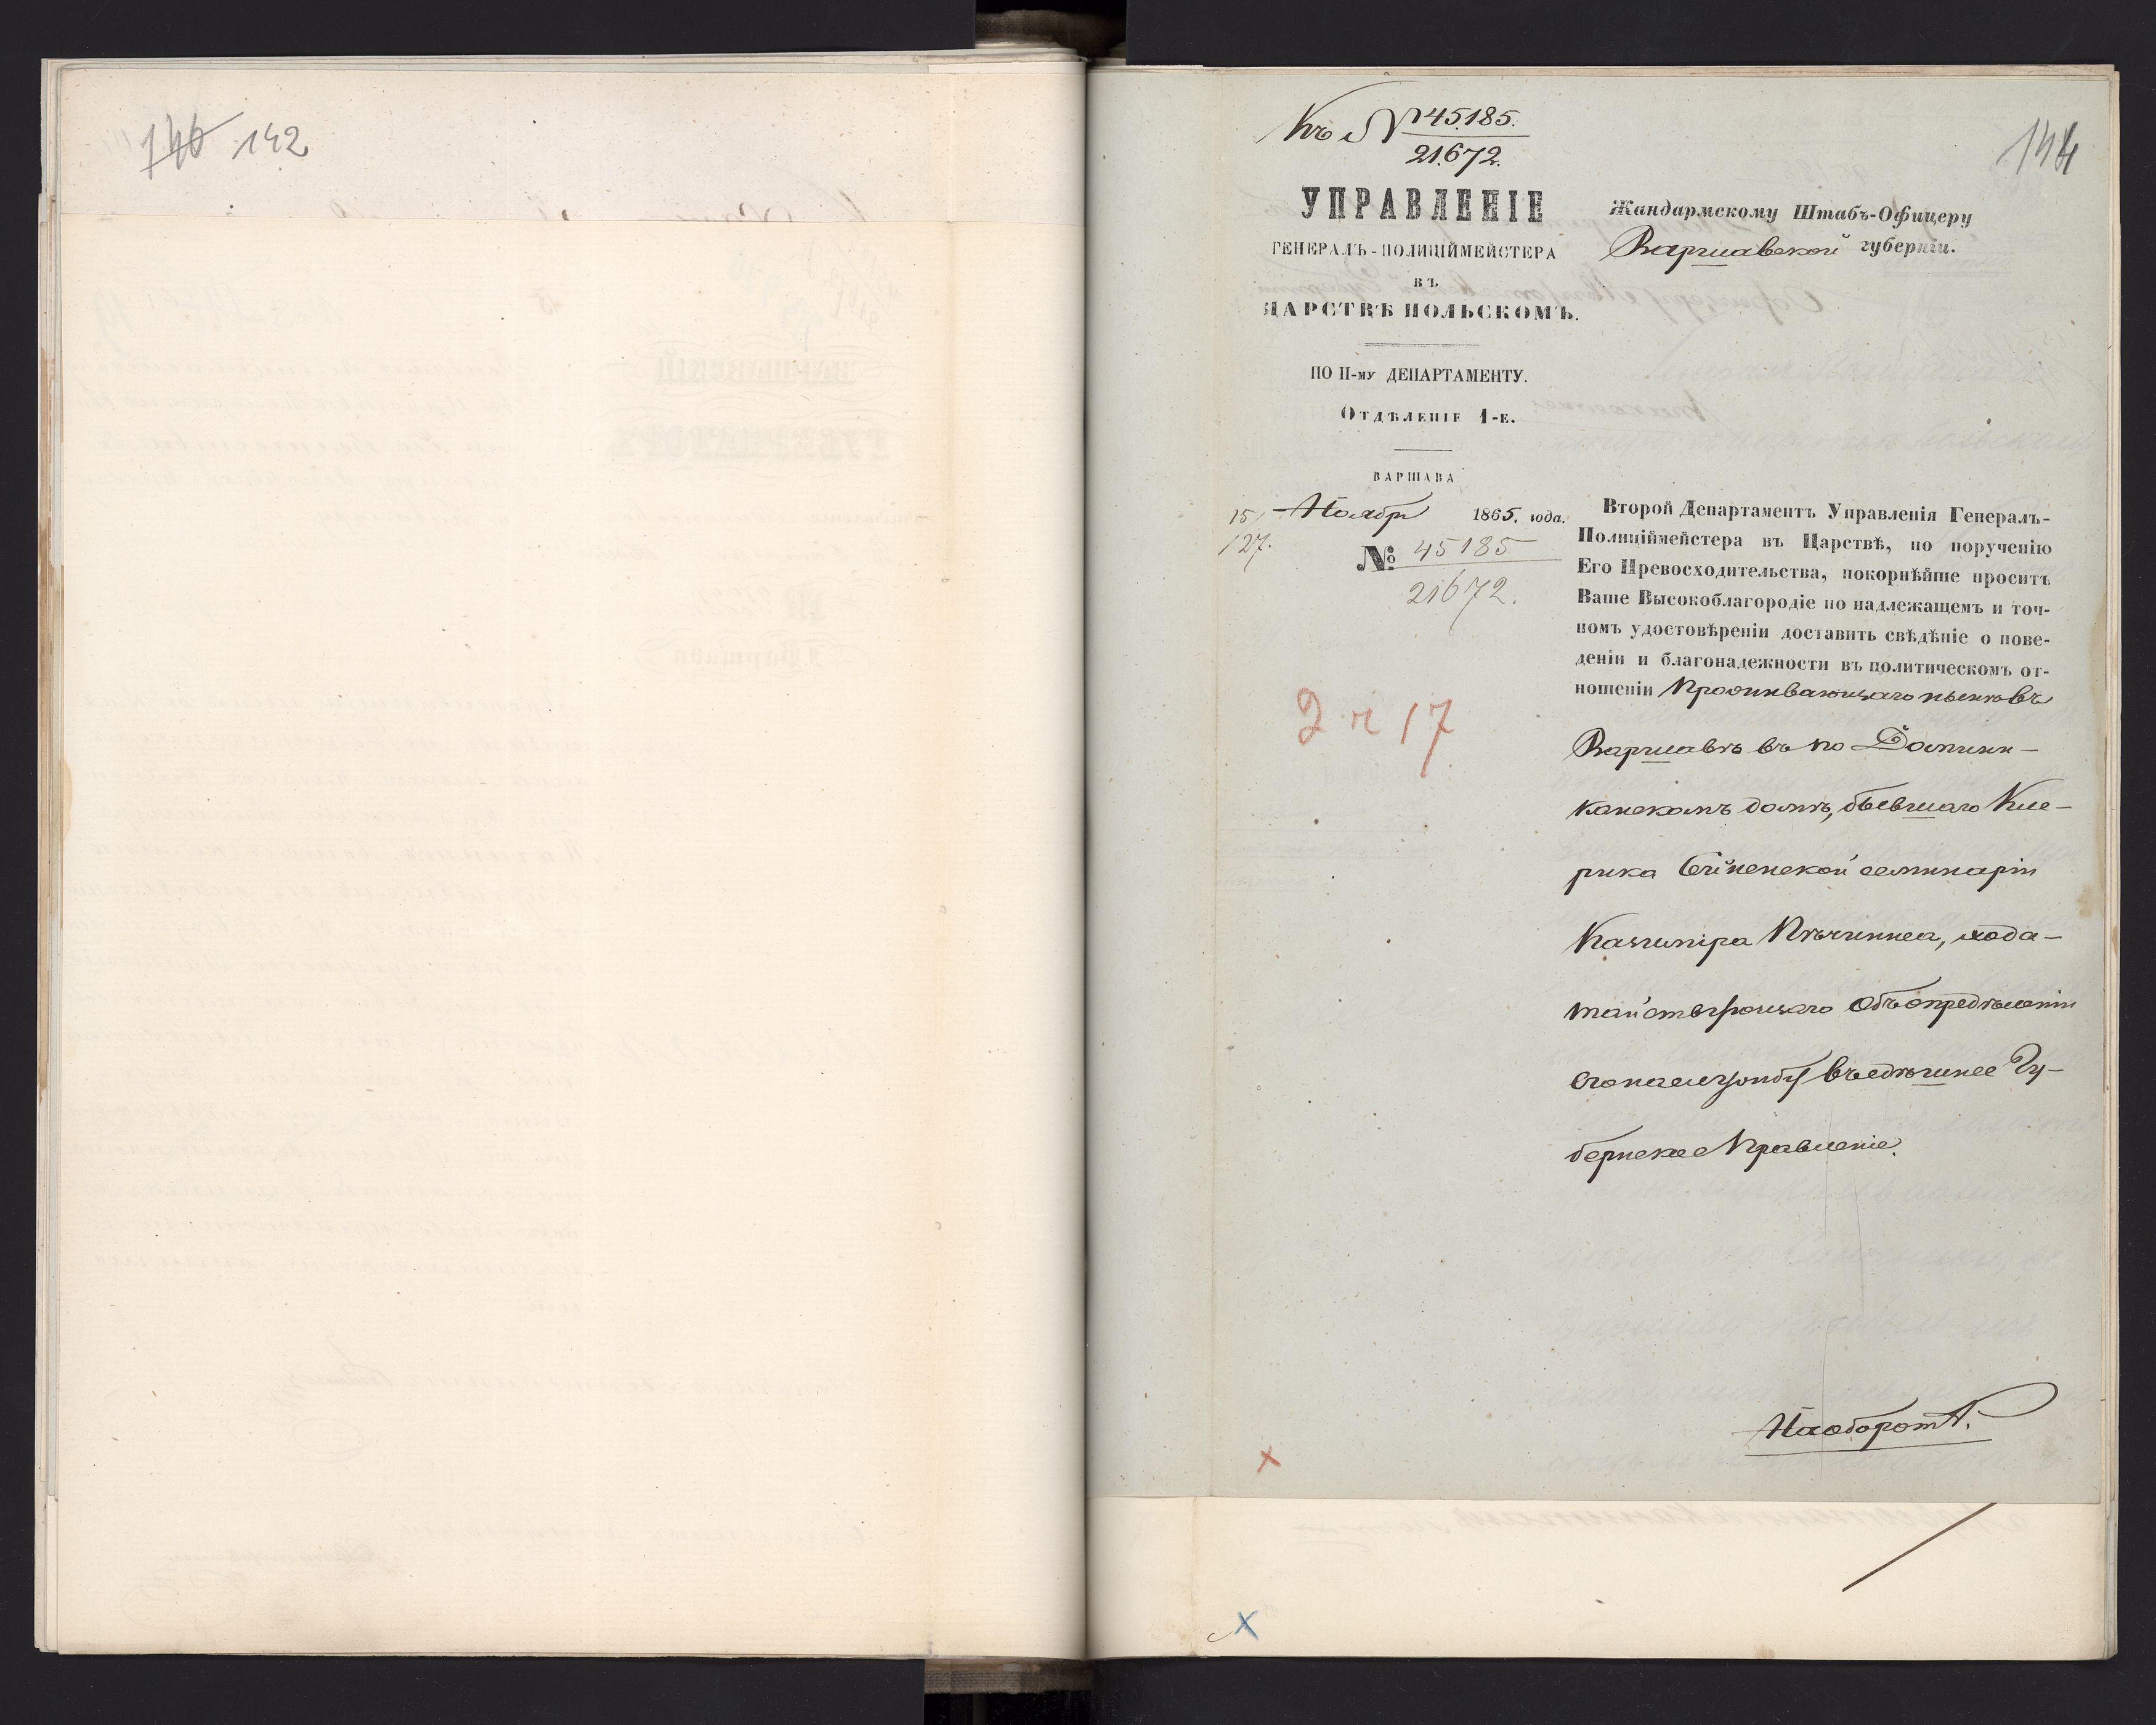 146 142
Къ № 45185.
21672.
144
УПРАВЛЕНІЕ
ГЕНЕРАЛЪ-ПОЛИЦІЙМЕЙСТЕРА
ВЪ
ЦАРСТВѢ ПОЛЬСКОМЪ.
ПО II-му ДЕПАРТАМЕНТУ.
Отдѣленіе 1-е.
ВАРШАВА
15/27. Ноября 1865. года.
№ 45185
21672.
2 ч 17
Жандармскому Штабъ-Офицеру
Варшавской губерніи.
Второй Департаментъ Управленія Генералъ-
Полиціймейстера въ Царствѣ, по порученію
Его Превосходительства, покорнѣйше проситъ
Ваше Высокоблагородіе по надлежащемъ и точ-
номъ удостовѣреніи доставить свѣдѣніе о пове-
деніи и благонадежности въ политическомъ от-
ношеніи проживающаго нынѣ въ
Варшавѣ въ по Домини-
канскомъ домѣ, бывшаго Кле-
рика Сейненской семинаріи
Казимira хода-
тайствующаго объ опредѣленіи
его на службу въ здѣшнее Гу-
бернское Правленіе.
На оборотѣ.